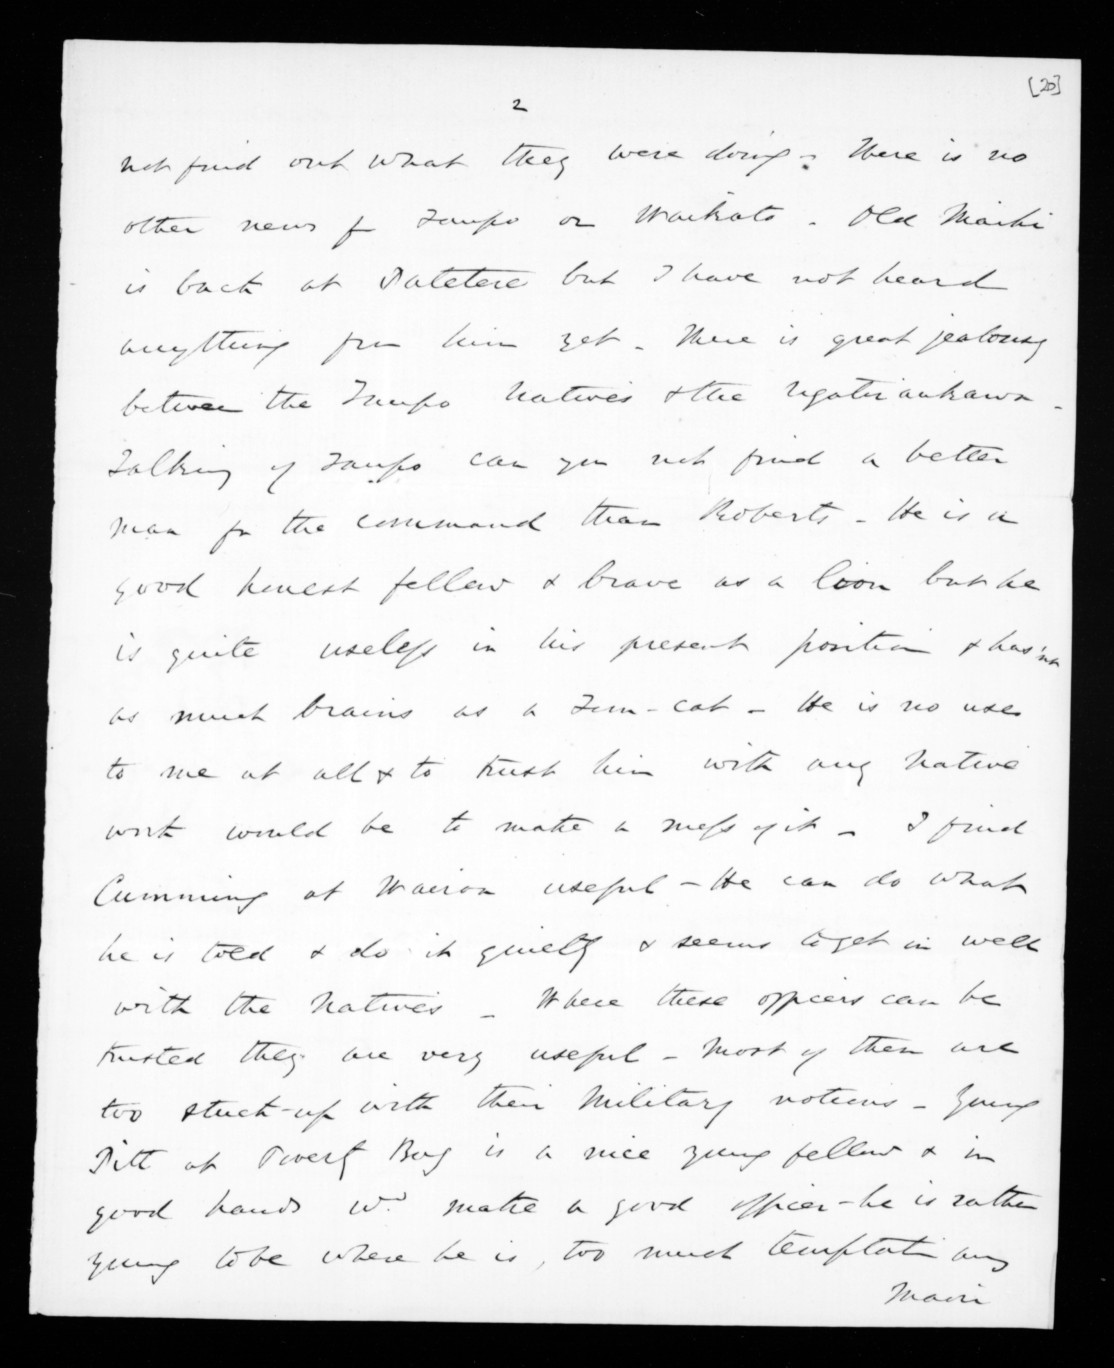 [20]
2
not find out what they were doing - There is no
other news fr Taupo or Waikato - Old Maihi
is back at Patetere but I have not heard
anything from him yet - There is great jealousy
between the Taupo Natives & the Ngatiraukawa -
Talking of Taupo can you not find a better
man for the command than Roberts - He is a
good honest fellow & brave as a lion but he
is quite useless in his present position & has'nt
as much brains as a Tom-cat - He is no use
to me at all & to trust him with any Native
work would be to make a mess of it - I find
Cumming at Wairoa useful - He can do what
he is told & do it quietly & seems to get in well
with the Natives - Where these officers can be
trusted they are very useful - Most of them are
too stuck-up with their Military notions - Young
Pitt at Poverty Bay is a nice young fellow & in
good hands wd. make a good officer - he is rather
young to be where he is, too much temptation
Maori